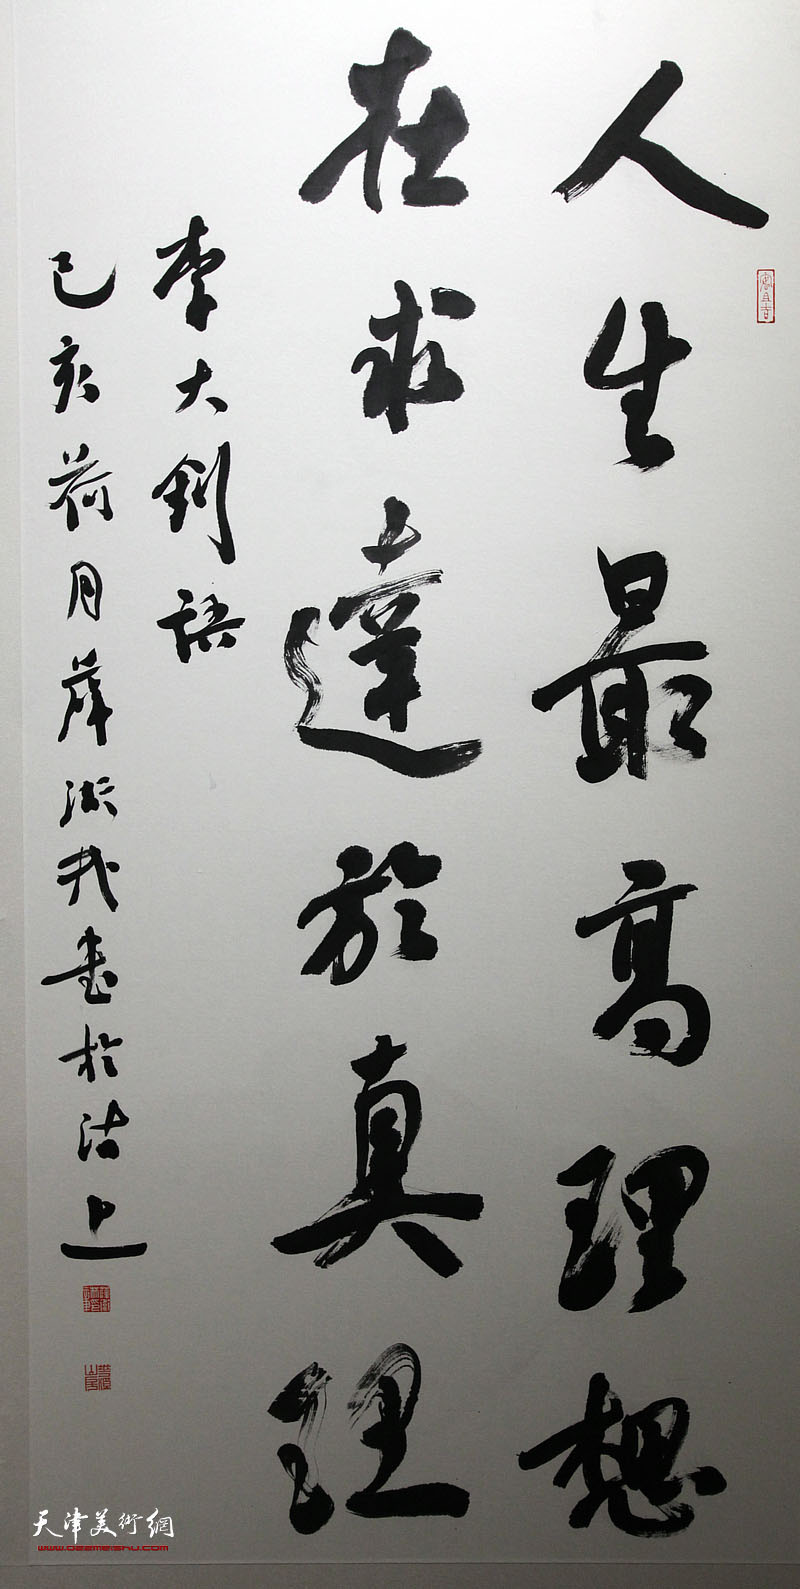 人生最高理想
在求達於真理
李大釗語
己亥荷月薛我書於沽上
天津美術網
www.022meishu.com